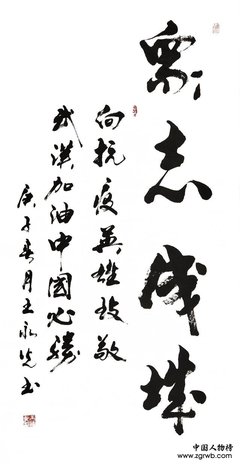 众志成城
向抗疫英雄致敬
武汉加油中国必胜
庚子春月王永光书
中国人物榜
www.zgrwb.com